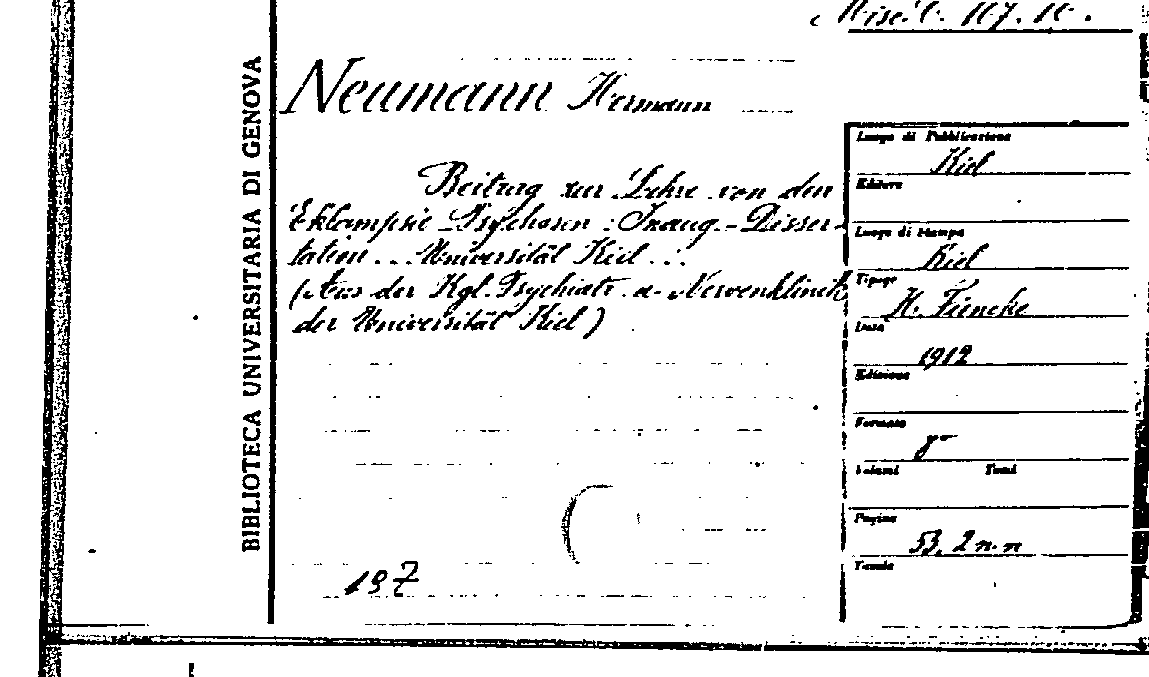 Misc. C. 107. 10.
BIBLIOTECA UNIVERSITARIA DI GENOVA
Neumann Hermann
Beitrag zur Lehre von den
Eklampsie Psychosen : Inaug.-Disser-
tation ... Universität Kiel ...
(Aus der Kgl. Psychiatr. u. Nervenklinik
der Universität Kiel)
197
Luogo di Pubblicazione
Kiel
Editore
Luogo di Stampa
Kiel
Tipogr.
H. Fiencke
Data
1912
Edizione
Formato
8°
Volumi Tomi
Pagine
53, 2 n. n
Tavole